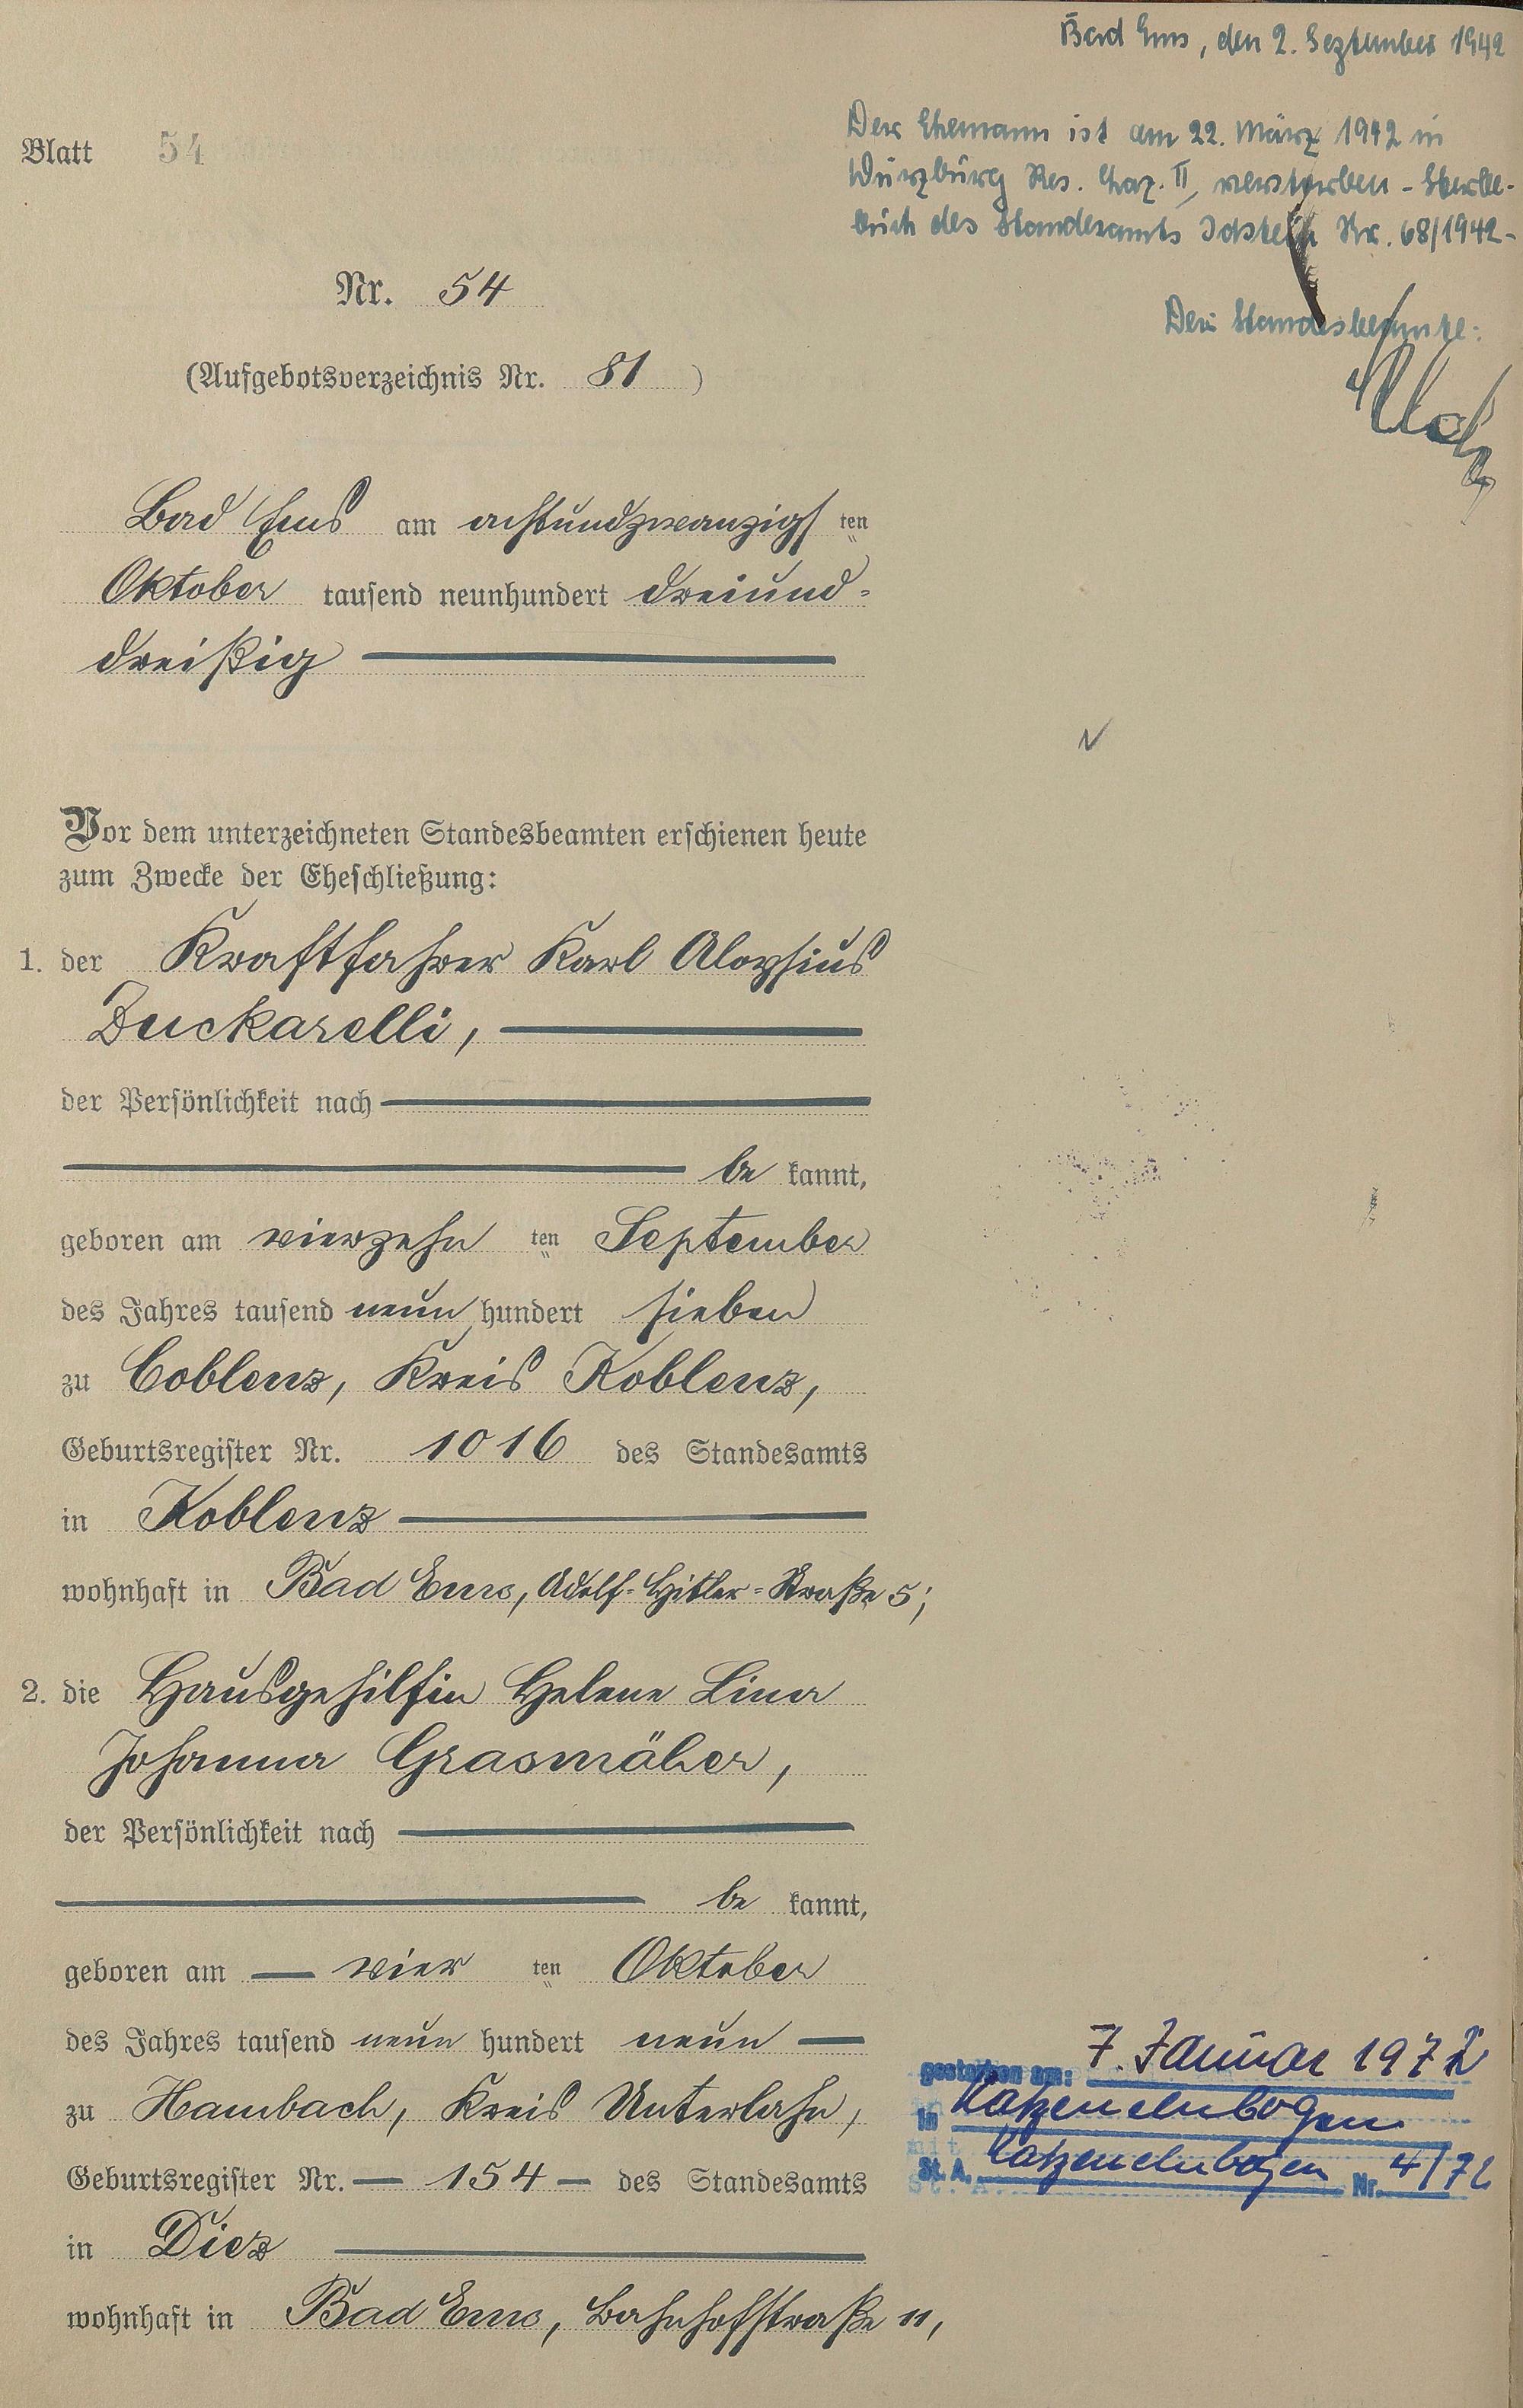 Bad Ems, den 2. September 1942
Der Ehemann ist am 22. März 1942 in
Würzburg Res. Laz. II, verstorben - Sterbe-
buch des Standesamts Idstein Nr. 68/1942-
Der Standesbeamte:
Blatt 54
Nr. 54
(Aufgebotsverzeichnis Nr. 81)
Bad Ems am achtundzwanzigsten
Oktober tausend neunhundert dreiund-
dreißig
Vor dem unterzeichneten Standesbeamten erschienen heute
zum Zwecke der Eheschließung:
1. der Kraftfahrer Karl Aloysius
Zuckarelli,
der Persönlichkeit nach
be kannt,
geboren am vierzehn ten September
des Jahres tausend neun hundert sieben
zu Coblenz, Kreis Koblenz,
Geburtsregister Nr. 1016 des Standesamts
in Koblenz
wohnhaft in Bad Ems, Adolf-Hitler-Straße 5;
2. die Hausgehilfin Helene Lina
Johanna Grasmäher,
der Persönlichkeit nach
be kannt,
geboren am vier ten Oktober
des Jahres tausend neun hundert neun
zu Hambach, Kreis Unterlahn,
Geburtsregister Nr. 154 des Standesamts
in Diez
wohnhaft in Bad Ems, Bahnhofstraße 11,
gestorben am: 7. Januar 1972
in Katzenelnbogen
St. A. Katzenelnbogen Nr. 4/72